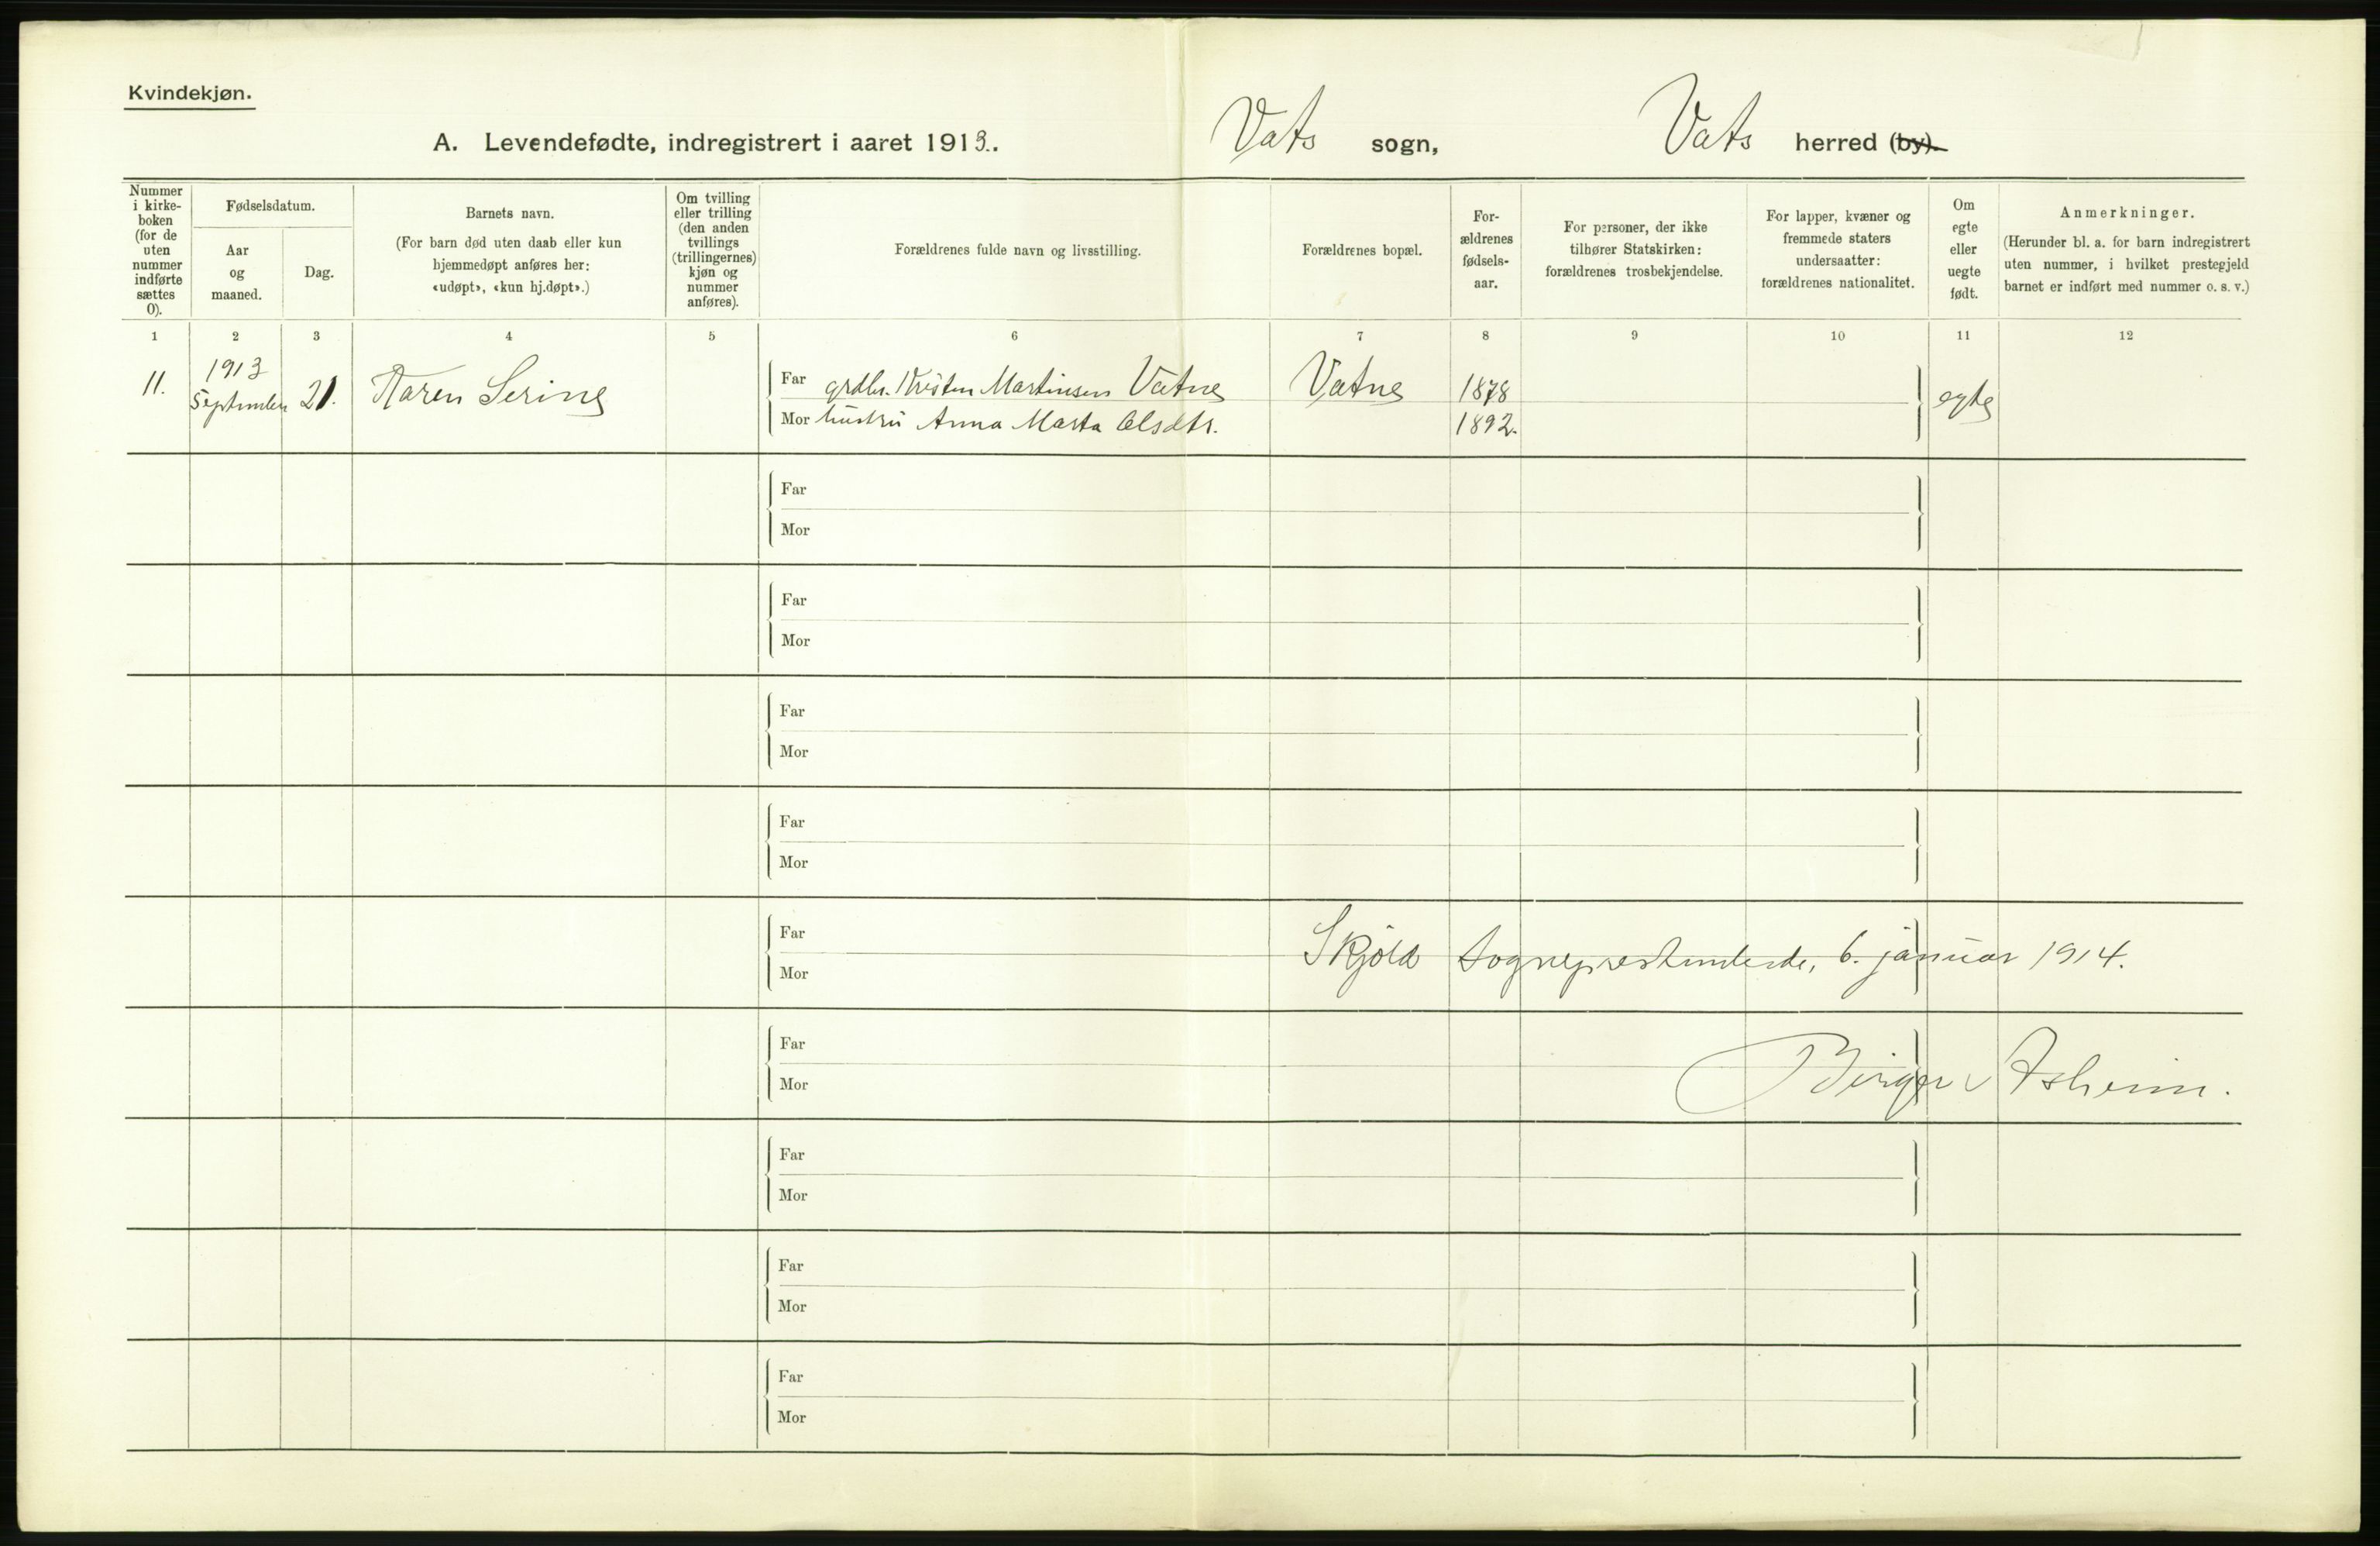 Kvindekjøn.
A. Levendefødte, indregistrert i aaret 1913.
Vats sogn, Vats herred (by).
Nummer i kirkeboken (for de uten nummer indførte sættes 0).
Fødselsdatum.
Aar og maaned.
Dag.
Barnets navn.
(For barn død uten daab eller kun hjemmedøpt anføres her: «udøpt», «kun hj.døpt».)
Om tvilling eller trilling (den anden tvillings (trillingernes) kjøn og nummer anføres).
Forældrenes fulde navn og livsstilling.
Forældrenes bopæl.
Forældrenes fødselsaar.
For personer, der ikke tilhører Statskirken: forældrenes trosbekjendelse.
For lapper, kvæner og fremmede staters undersaatter: forældrenes nationalitet.
Om egte eller uegte født.
Anmerkninger.
(Herunder bl. a. for barn indregistrert uten nummer, i hvilket prestegjeld barnet er indført med nummer o. s. v.)
1 2 3 4 5 6 7 8 9 10 11 12
11. 1913 September 21. Karen Serine
Far grdbr. Kristen Martinsen Vatne Vatne 1878 egte
Mor hustru Anna Marta Olsdtr. 1892.
Far
Mor
Far
Mor
Far
Mor
Far
Mor
Far
Mor
Skjold sogneprestembede, 6. januar 1914.
Far
Mor
Birger Asheim.
Far
Mor
Far
Mor
Far
Mor